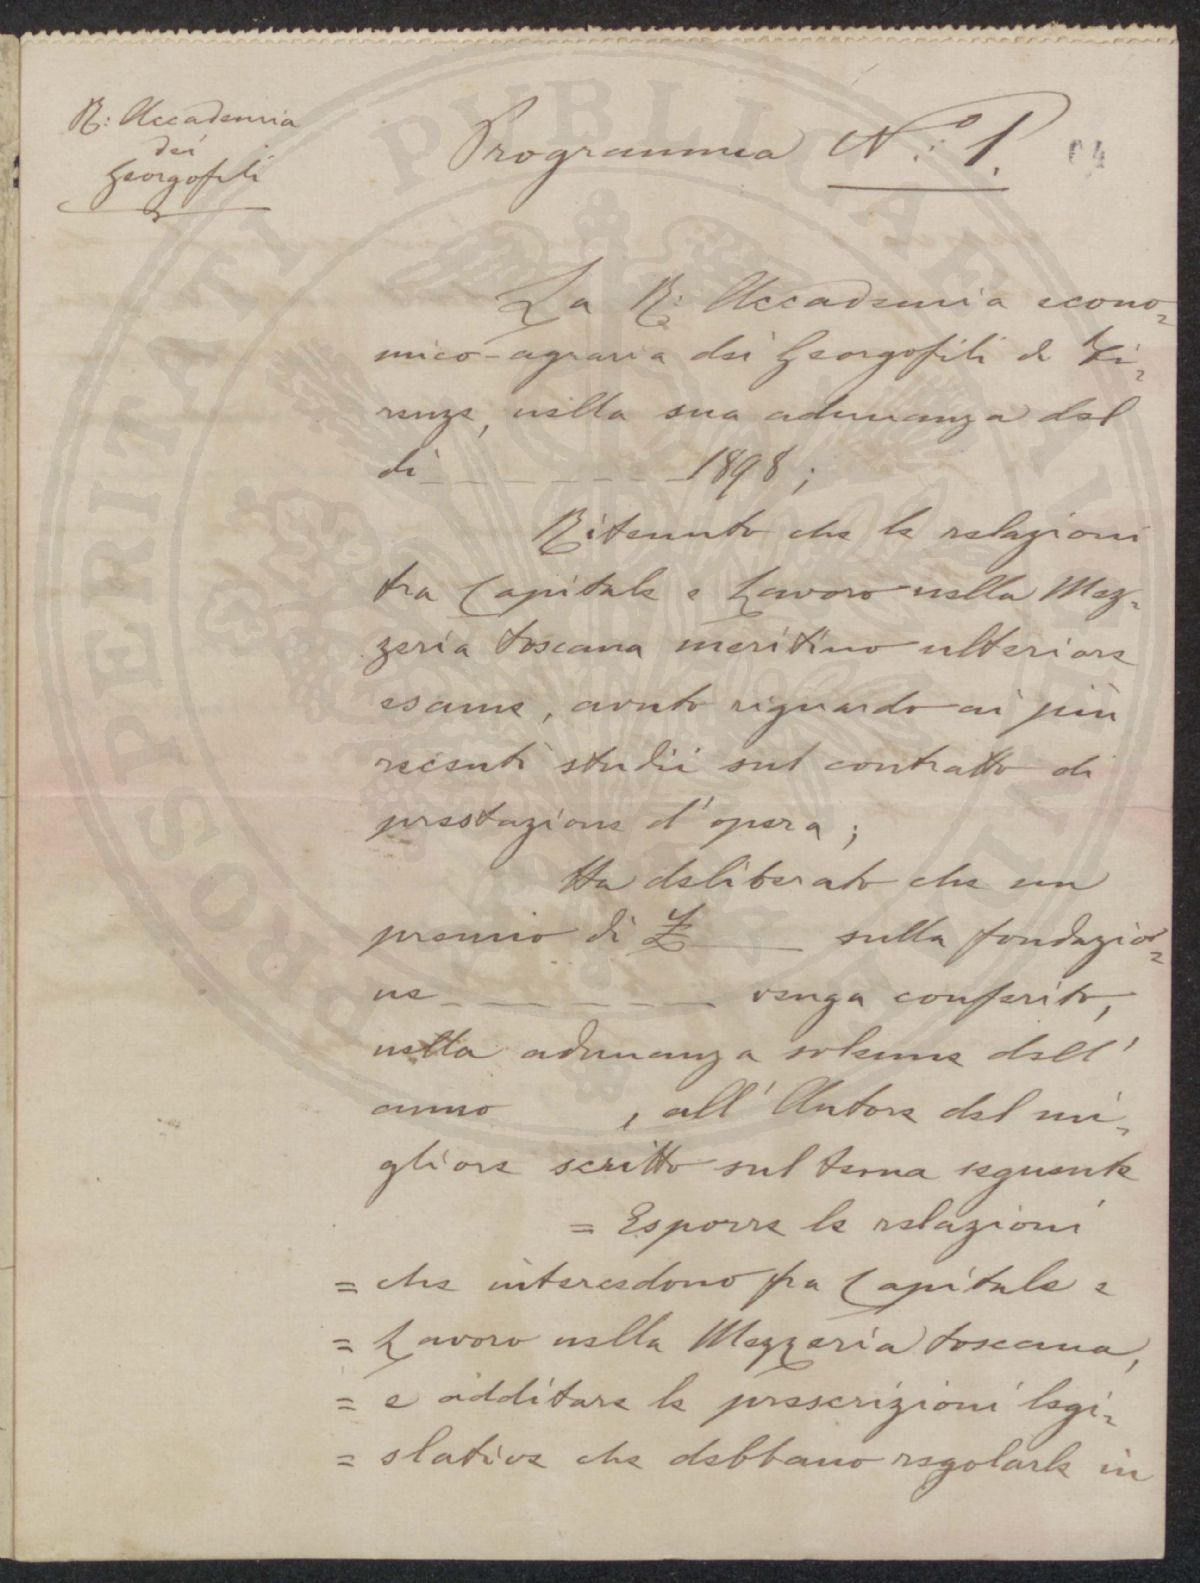 R: Accademia
dei
Georgofili
Programma N.° 1.
64
La R: Accademia econo=
mico-agraria dei Georgofili di Fi=
renze, nella sua adunanza del
dì _ _ _ _ _ _ _ 1898;
Ritenuto che le relazioni
tra Capitale e Lavoro nella Mez=
zeria toscana meritino ulteriore
esame, avuto riguardo ai più
recenti studii sul contratto di
prestazione d'opera;
Ha deliberato che un
premio di £ ___ sulla fondazio=
ne _ _ _ _ _ _ venga conferito,
nella adunanza solenne dell'
anno , all'Autore del mi=
gliore scritto sul tema seguente
= Esporre le relazioni
= che intercedono fra Capitale e
= Lavoro nella Mezzeria toscana,
= e additare le prescrizioni legi=
= slative che debbano regolarle in
PROSPERITATI PUBLICAE AUGENDAE